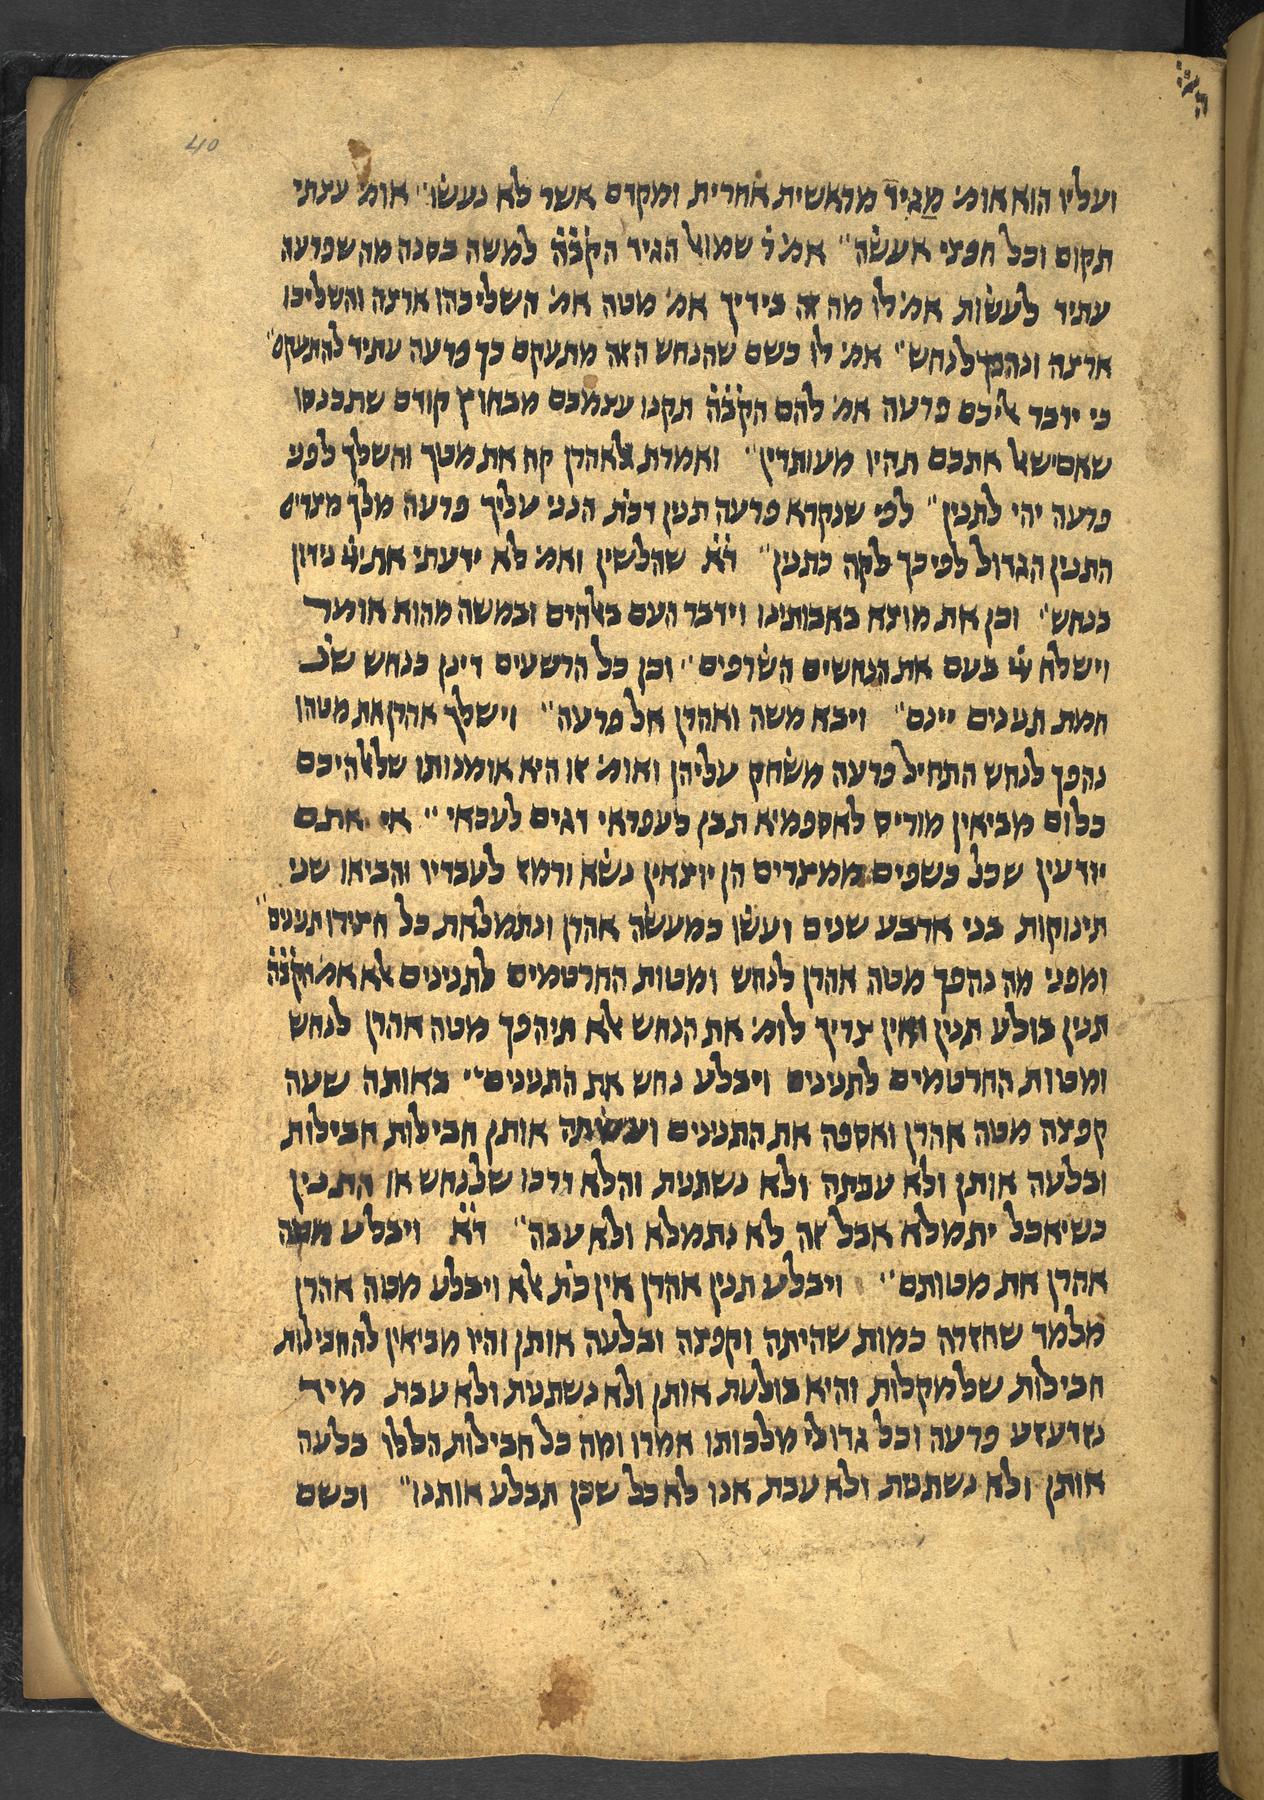 40
ועליו הוא אומ׳ מגיד מראשית אחרית ומקדם אשר לא נעשו׳׳ אומ׳ עצתי
תקום וכל חפצי אעשה׳׳ אמ׳ ר׳ שמואל הגיד הקבה למשה בסנה מה שפרעה
עתיד לעשות אמ׳ לו מה זה בידיך אמ׳ מטה אמ׳ השליכהו ארצה והשליכו
ארצה ונהפך לנחש׳׳ אמ׳ לו כשם שהנחש הזה מתעקם כך פרעה עתיד להתעקם׳׳
כי ידבר אליכם פרעה אמ׳ להם הקבה תקנו עצמכם מבחוץ קודם שתכנסו
שאם ישאל אתכם תהיו מעותדין׳׳ ואמרת לאהרן קח את מטך והשלך לפני
פרעה יהי לתנין׳׳ לפי שנקרא פרעה תנין דכת׳ הנני עליך פרעה מלך מצרים
התנין הגדול לפיכך לקה כתנין׳׳ דא שהלשין ואמ׳ לא ידעתי את יי נידון
כנחש׳׳ וכן את מוצא באבותינו וידבר העם באלהים ובמשה מהוא אומר
וישלח יי בעם את הנחשים השרפים׳׳ וכן כל הרשעים דינן כנחש שנ׳
חמת תנינים יינם׳׳ ויבא משה ואהרן אל פרעה׳׳ וישלך אהרן את מטהו
נהפך לנחש התחיל פרעה משחק עליהן ואומ׳ זו היא אומנותו שלאלהיכם
כלום מביאין מוריס לאספמיא תבן לעפראי דגים לעכאי׳׳ אי אתם
יודעין שכל כשפים ממצרים הן יוצאין נשא ורמז לעבדיו והביאו שני
תינוקות בני ארבע שנים ועשו כמעשה אהרן ונתמלאת כל חצירו תנינים׳׳
ומפני מה נהפך מטה אהרן לנחש ומטות החרטמים לתנינים אלא אמ׳ הקבה
תנין בולע תנין ואין צריך לומ׳ את הנחש אלא תיהפך מטה אהרן לנחש
ומטות החרטמים לתנינים ויבלע נחש את התנינים׳׳ באותה שעה
קפצה מטה אהרן ואספה את התנינים ועשתה אותן חבילות חבילות
ובלעה אותן ולא עבתה ולא נשתנית והלא דרכו שלנחש או התנין
כשיאכל יתמלא אבל זה לא נתמלא ולא עבה׳׳ דא ויבלע מטה
אהרן את מטותם׳׳ ויבלע תנין אהרן אין כת׳ אלא ויבלע מטה אהרן
מלמד שחזרה כמות שהיתה וקפצה ובלעה אותן והיו מביאין להחבילות
חבילות שלמקלות והיא בולעת אותן ולא נשתנית ולא עבת מיד
נזדעזע פרעה וכל גדולי מלכותו אמרו ומה כל חבילות הללו בלעה
אותן ולא נשתנית ולא עבת אנו לא כל שכן תבלע אותנו׳׳ וכשם